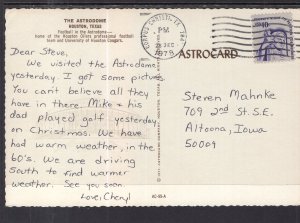 THE ASTRODOME
HOUSTON, TEXAS
Football in the Astrodome —
home of the Houston Oilers professional football
team and University of Houston Cougars.
Dear Steve,
We visited the Astrodome
yesterday. I got some pictures.
You can't believe all they
have in there. Mike & his
dad played golf yesterday
on Christmas. We have
had warm weather, in the
60's. We are driving
South to find warmer
weather. See you soon.
Love, Cheryl
CORPUS CHRISTI, TX
PM
26 DEC
1978
ASTROCARD
Steven Mahnke
709 2nd St. S.E.
Altoona, Iowa
50009